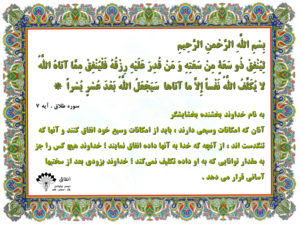 بِسْمِ اللَّهِ الرَّحْمنِ الرَّحِيمِ
لِيُنْفِقْ ذُو سَعَةٍ مِنْ سَعَتِهِ وَ مَنْ قُدِرَ عَلَيْهِ رِزْقُهُ فَلْيُنْفِقْ مِمَّا آتَاهُ اللَّهُ
لا يُكَلِّفُ اللَّهُ نَفْساً إِلاَّ ما آتاها سَيَجْعَلُ اللَّهُ بَعْدَ عُسْرٍ يُسْراً
سوره طلاق . آیه ۷
به نام خداوند بخشنده بخشایشگر
آنان که امکانات وسیعی دارند ، باید از امکانات وسیع خود انفاق کنند و آنها که
تنگدست اند ، از آنچه که خدا به آنها داده انفاق نمایند ؛ خداوند هیچ کس را جز
به مقدار توانایی که به او داده تکلیف نمی‌کند ؛ خداوند بزودی بعد از سختیها
آسانی قرار می دهد .
انفاق